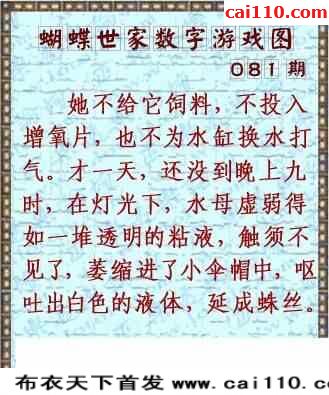 cai110.com
蝴蝶世家数字游戏图
081期
她不给它饲料，不投入
增氧片，也不为水缸换水打
气。才一天，还没到晚上九
时，在灯光下，水母虚弱得
如一堆透明的粘液，触须不
见了，萎缩进了小伞帽中，呕
吐出白色的液体，延成蛛丝。
布衣天下首发 www.cai110.com